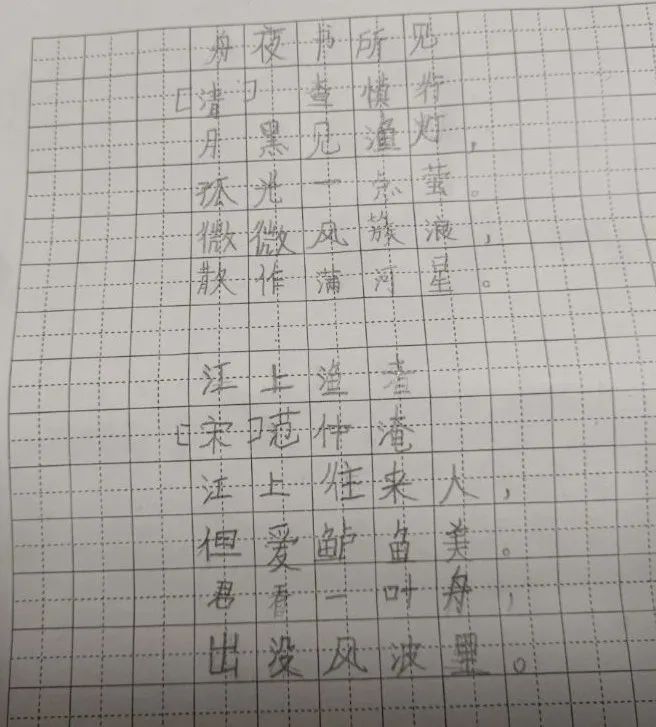 舟夜书所见
[清] 查慎行
月黑见渔灯，
孤光一点萤。
微微风簇浪，
散作满河星。
江上渔者
[宋]范仲淹
江上往来人，
但爱鲈鱼美。
君看一叶舟，
出没风波里。